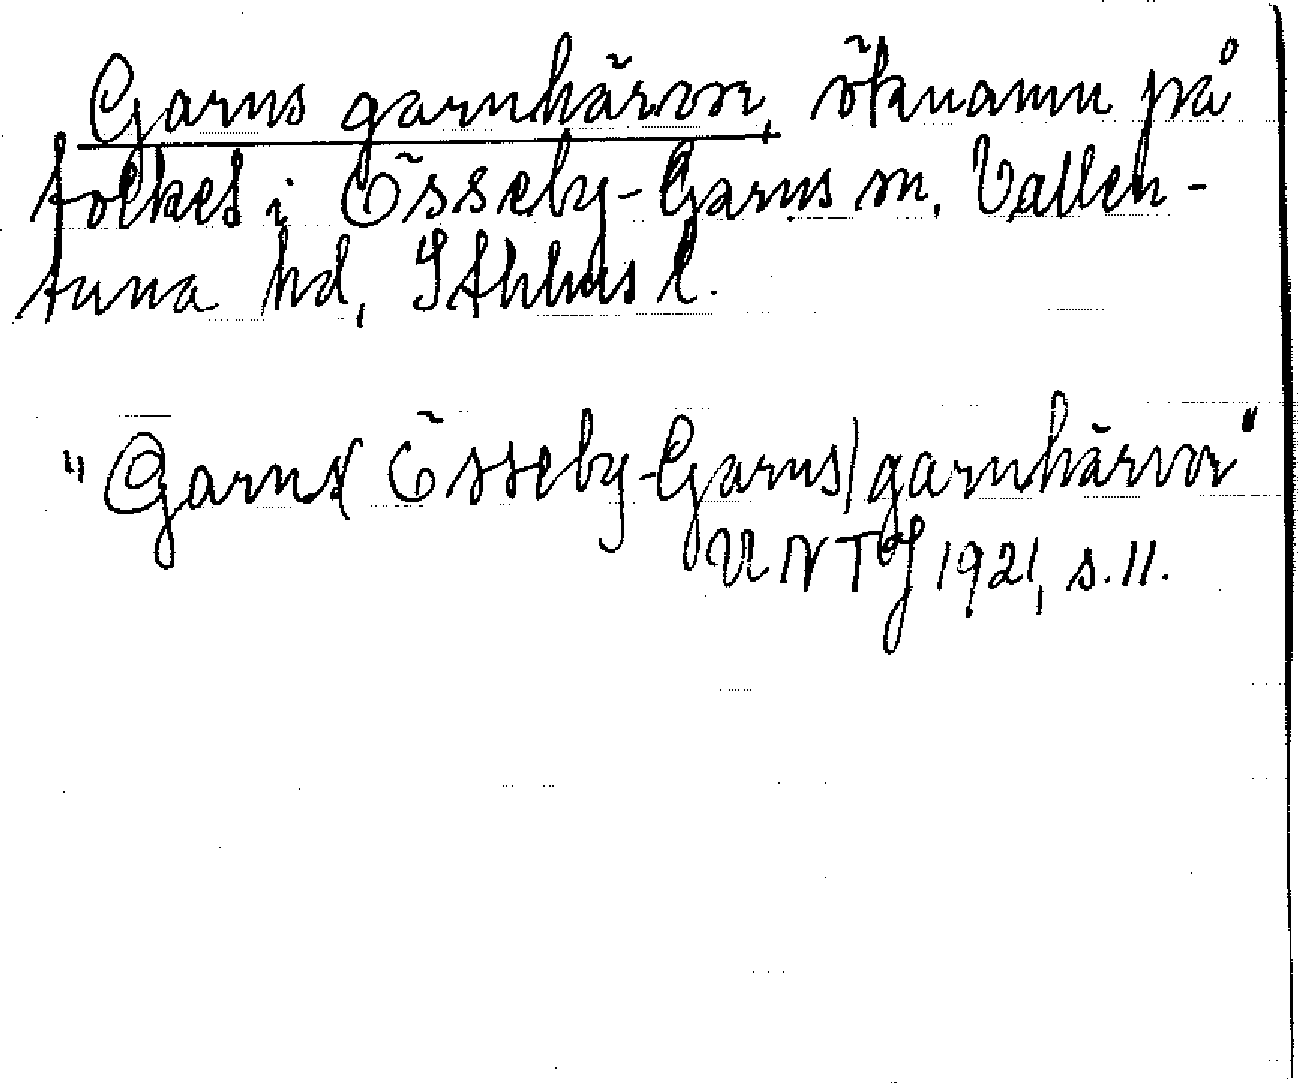 Garns garnhärvor, öknamn på
folket i Össeby-Garns sn. Vallen-
tuna hd, Sthlms l.
"Garns (Össeby-Garns) garnhärvor"
UNT J 1921, s. 11.